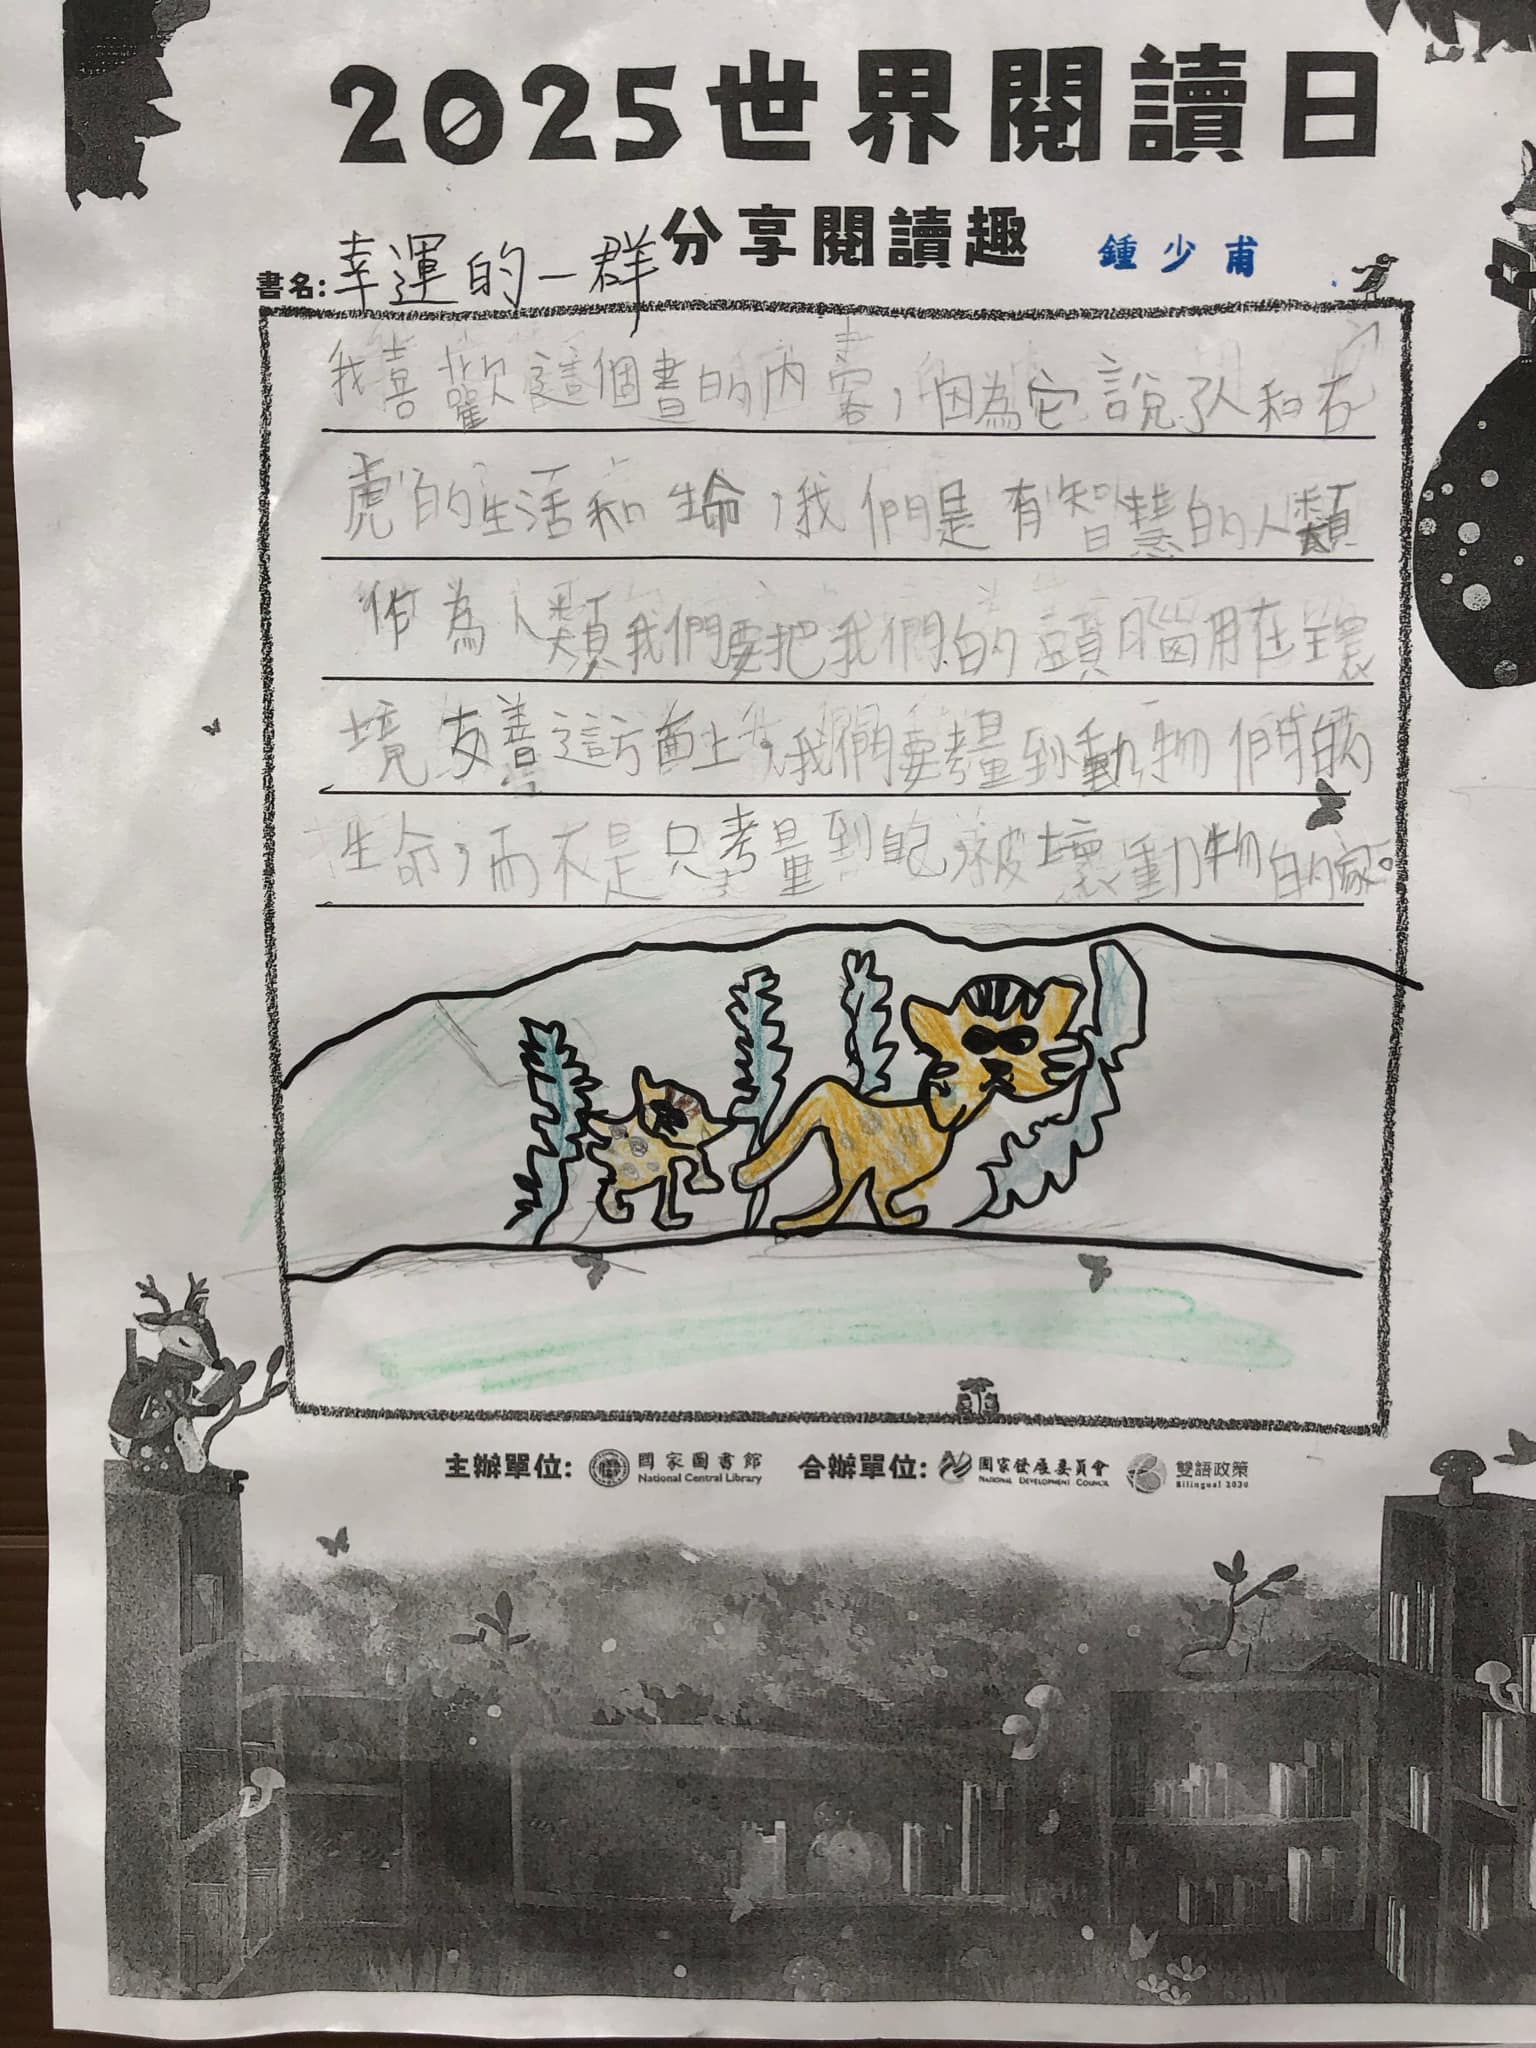 2025世界閱讀日
分享閱讀趣
鍾少甫
書名:幸運的一群
我喜歡這個書的內容，因為它說了人和石
虎的生活和生命，我們是有智慧的人類
作為人類我們要把我們的頭腦用在環
境友善這方面上，我們要考量到動物們的
生命，而不是只考量到自己，被壞動物的家。
主辦單位: 國家圖書館 National Central Library 合辦單位: 國家發展委員會 NATIONAL DEVELOPMENT COUNCIL 雙語政策 Bilingual 2030